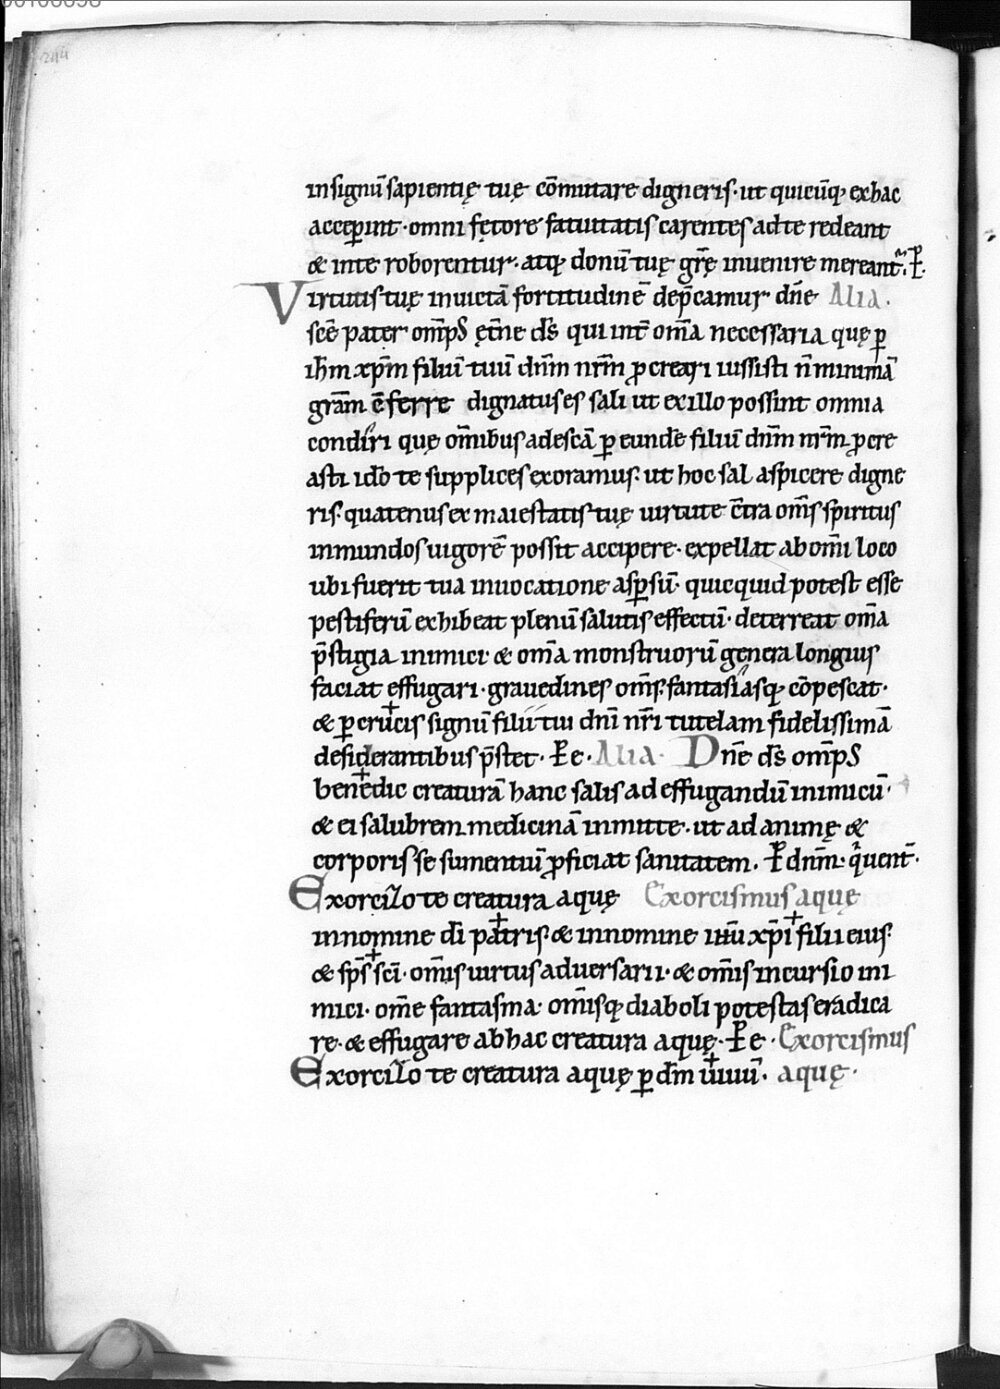 244
insignū sapientię tuę cōmutare digneris · ut quicūq; ex hac
acceꝑint · omni fętore fatuitatis carentes ad te redeant
& in te roborentur · atq; donū tuę grę̄ inuenire mereant᷑ · P̄.
Virtutis tuę inuictā fortitudinē dep̄camur dn̄e Alia ·
sc̄e pater om̄ps ęt̄ne ds̄ qui int̄ om̄a necessaria quę ꝑ
ih̄m xp̄m filiū tuū dn̄m nr̄m ꝓcreari iussisti n̄ minimā
grām c̄ferre dignatus es sali ut ex illo possint omnia
condiri quę om̄ibus ad escā ꝑ eundē filiū dn̄m nr̄m ꝓcre
asti idō te supplices exoramus · ut hoc sal aspicere digne
ris · quatenus ex maiestatis tuę uirtute c̄tra om̄s spiritus
inmundos uigorē possit accipere · expellat ab om̄i loco
ubi fuerit tua inuocatione asꝑsū · quicquid potest esse
pestiferū exhibeat plenū salutis effectū · deterreat om̄a
p̄stigia inimici · & om̄a monstruorū genera longius
faciat effugari · grauedines om̄s · fantasiasq; cōpescat ·
& ꝑ cru+cis signū filii tui dn̄i nr̄i tutelam fidelissimā
desiderantibus p̄stet · P̄ e · Alia · Dn̄e ds̄ om̄ps
bene+dic creaturā hanc salis ad effugandū inimicū ·
& ei salubrem medicinā inmitte · ut ad animę &
corporis se sumentiū ꝓficiat sanitatem . P̄ dn̄m · q̇ uent̄ ·
Exorcizo te creatura aquę Exorcismus aquę
in nomine dī pa+tris · & in nomine ihū xp̄i + filii eius ·
& sp̄s + sc̄i · om̄is uirtus aduersarii · & om̄is incursio ini
mici · om̄e fantasma · om̄isq; diaboli potestas eradica
re · & effugare ab hac creatura aquę · P̄ e · Exorcismus
Exorcizo te creatura aquę ꝑ dm̄ + uiuū · aquę ·